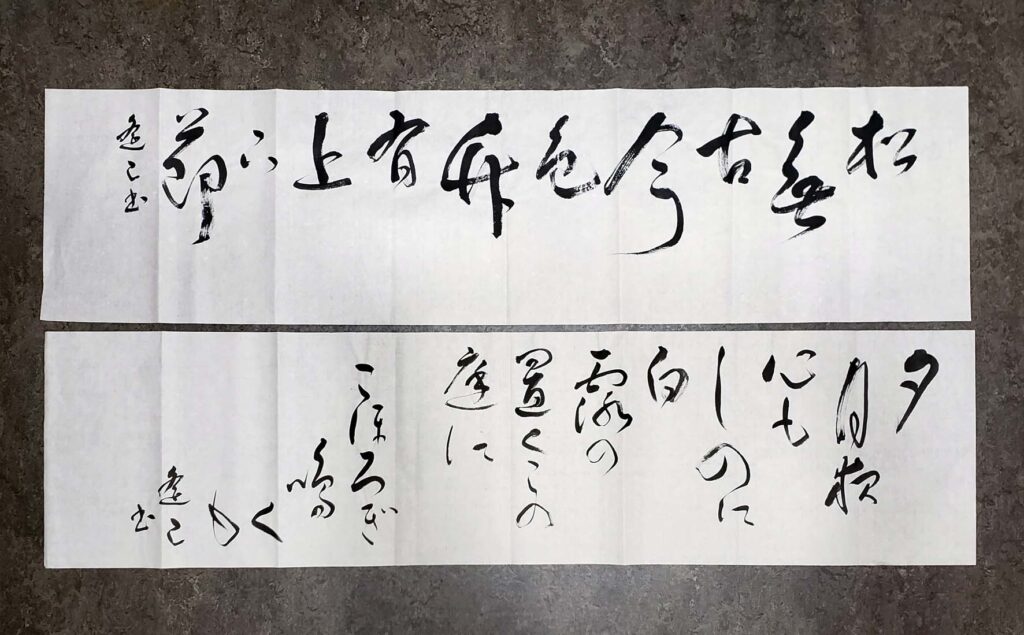 松無古今色竹有上下節
書
夕
月夜
心も
しのに
白
露の
置くこの
庭に
こほろぎ
鳴
く
も
書